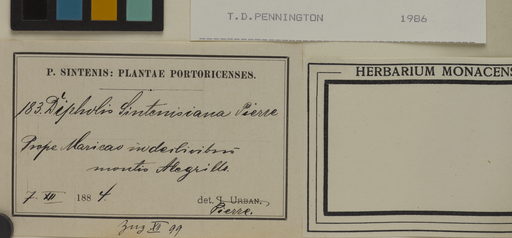 T.D.PENNINGTON 1986
P. SINTENIS: PLANTAE PORTORICENSES.
HERBARIUM MONACENS
183. Dipholis Sintenisiana Pierre
Prope Maricao in declivibus
montis Alegrillo.
7. XII 1884 det. I. URBAN.
Pierre.
XI 99